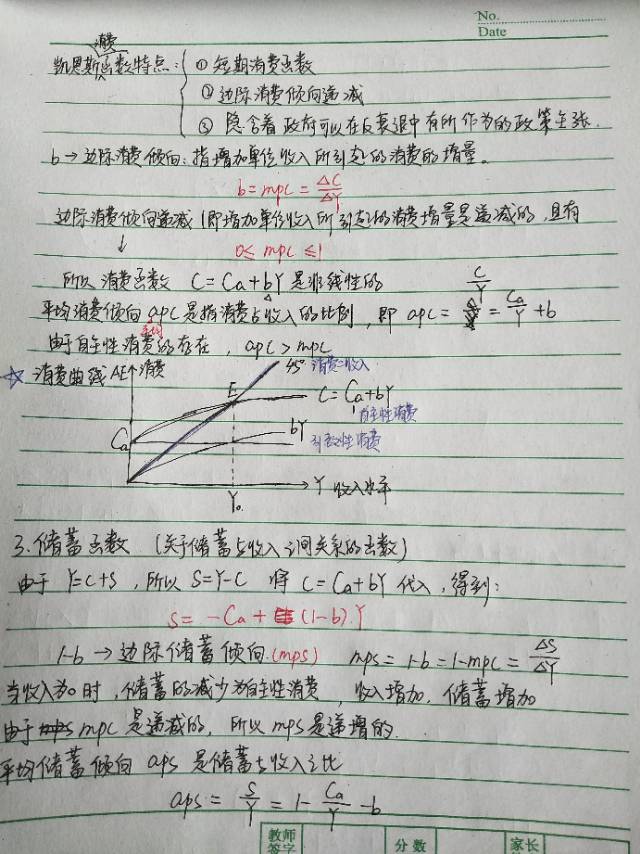 No.
Date
消费
凯恩斯函数特点:
① 短期消费函数
② 边际消费倾向递减
③ 隐含着政府可以在反衰退中有所作为的政策主张.
b → 边际消费倾向: 指增加单位收入所引起的消费的增量。
b = mpc = ΔC/ΔY
边际消费倾向递减 (即增加单位收入所引起的消费增量是递减的, 且有
0 ≤ mpc ≤ 1
所以 消费函数 C = Ca + bY 是非线性的
平均消费倾向 apc 是指消费占收入的比例, 即 apc = C/Y = Ca/Y + b
由于自主性消费的存在, apc > mpc
☆ 消费曲线 AE 消费
45° 消费=收入
E
C = Ca + bY
自主性消费
Ca
bY
引致性消费
Y 收入水平
Y₀
3. 储蓄函数 (关于储蓄与收入之间关系的函数)
由于 Y=C+S, 所以 S=Y-C 将 C=Ca+bY 代入, 得到:
S = -Ca + (1-b).Y
1-b → 边际储蓄倾向.(mps) mps = 1-b = 1-mpc = ΔS/ΔY
当收入为0时, 储蓄的减少为自主性消费, 收入增加, 储蓄增加
由于 mpc 是递减的, 所以 mps 是递增的.
平均储蓄倾向 aps 是储蓄与收入之比
aps = S/Y = 1 - Ca/Y - b
教师签字
分数
家长